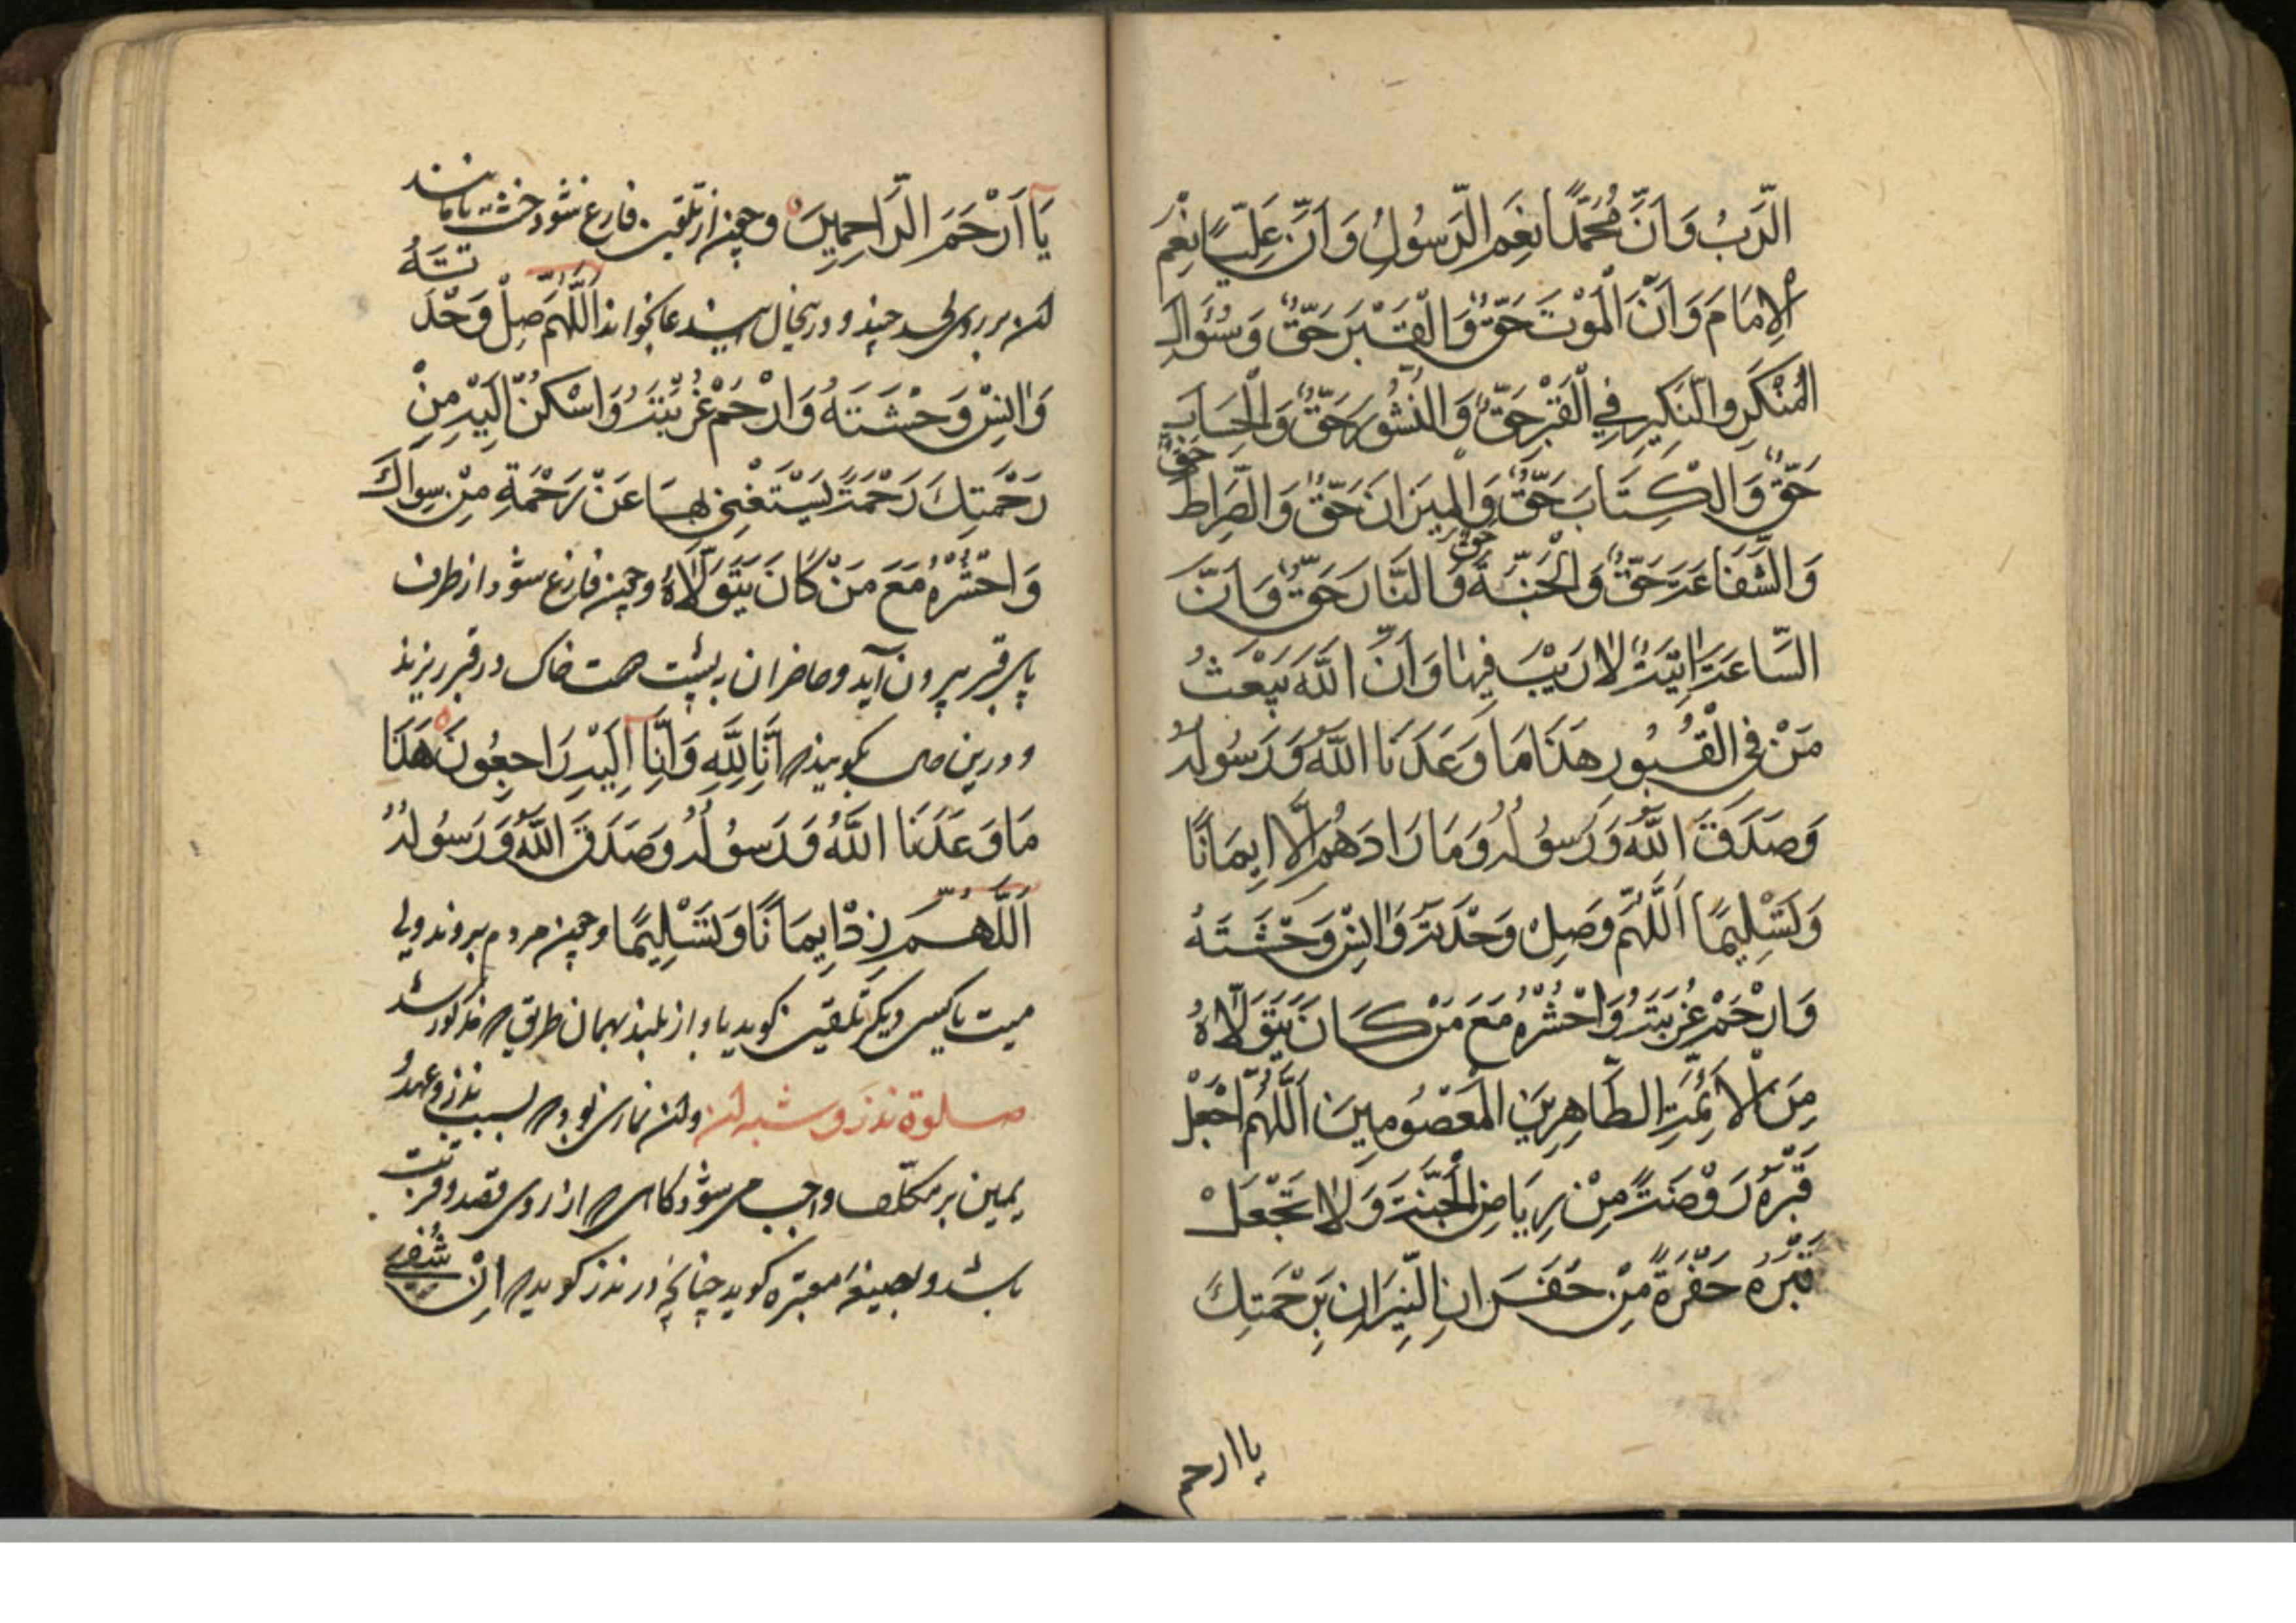 الرَّبُ وَاَنَّ مُحَمَّدًا نِعَمِ الرَّسُولُ وَ اَنَّ عَلِيًّا نِعْمِ
الْاِمَامَ وَ اَنَّ الْمَوْتَ حَقٌّ وَالْقَبْرَ حَقٌّ وَ سُئَوالَ
الْمُنْكَرِ والنَّكِيرِ فِي الْقَبْرِ حَقٌّ وَ النُّشُورَ حَقٌّ وَ الْحِسَابِ
حَقٌّ وَالْكِتَابَ حَقٌّ وَالْمِيزَانَ حَقٌّ وَ الصِّرَاطَ حَقٌّ
وَ الشَّفَاعَةَ حَقٌّ وَ الْجَنَّةَ حَقٌّ وَالنَّارَ حَقٌّ وَ اَنَّ
السَّاعَةَ اٰتِيَةٌ لَا رَيْبَ فِيهَا وَ اَنَّ اللَّهَ يَبْعَثُ
مَنْ فِي الْقُبُورِ هَذَا مَا وَعَدَنَا اللَّهُ وَ رَسُولُهُ
وَ صَدَقَ اللَّهُ وَ رَسُولُهُ وَ مَا زَادَهُمْ اِلَّا اِيمَانًا
وَ تَسْلِيمًا اَللَّهُمَّ وَصِلْ وَحْدَتَهُ وَ اٰنِسْ وَحْشَتَهُ
وَ ارْحَمْ غُرْبَتَهُ وَ احْشُرْهُ مَعَ مَنْ كَانَ يَتَوَلَّاهُ
مِنَ الْاَئِمَّةِ الطَّاهِرِينَ الْمَعْصُومِينَ اَللَّهُمَّ اجْعَلْ
قَبْرَهُ رَوْضَةً مِنْ رِيَاضِ الْجَنَّةِ وَ لَا تَجْعَلْ
قَبْرَهُ حَفْرَةً مِنْ حُفَرَ انِ النِّيَرانِ بِرَحْمَتِكَ
يا ارحم
يَا اَرْحَمَ الرَّاحِمِينَ و چون از تلقین فارغ شود خشت یا مانند
آن بر روی لحد چیند و در آنحال این دعا بخواند اَللَّهُمَّ صِلْ وَحْدَتَهُ
وَ اٰنِسْ وَحْشَتَهُ وَ ارْحَمْ غُرْبَتَهُ وَ اسْكُنْ اِلَيْهِ مِنْ
رَحْمَتِكَ رَحْمَةً يَسْتَغْنِي بِهَا عَنْ رَحْمَةِ مِنْ سِوَاكَ
وَ احْشُرْهُ مَعَ مَنْ كَانَ يَتَوَلَّاهُ و چون فارغ شود از طرف
پای قبر بیرون آید و حاضران به پشت دست خاک در قبر ریزند
و درین حال بگویند که اِنَّا لِلَّهِ وَ اِنَّا اِلَيْهِ رَاجِعُونَ هَذَا
مَا وَعَدَنَا اللَّهُ وَ رَسُولُهُ وَ صَدَقَ اللَّهُ وَ رَسُولُهُ
اَللَّهُمَّ زِدْ اِيمَانًا وَ تَسْلِيمًا و چون مردم بروند ولی
میت یا کسی دیگر تلقین گوید باواز بلند بهمان طریق که مذکور شد
صلوة نذر و شبه آن و آن نمازی بود که بسبب نذر و عهد و
یمین بر مکلّف واجب می شود گاهی که از روی قصد و قربت
باشد و بصیغهٔ معتبره گوید چنانچه در نذر گوید که اِنْ شُفِيَ